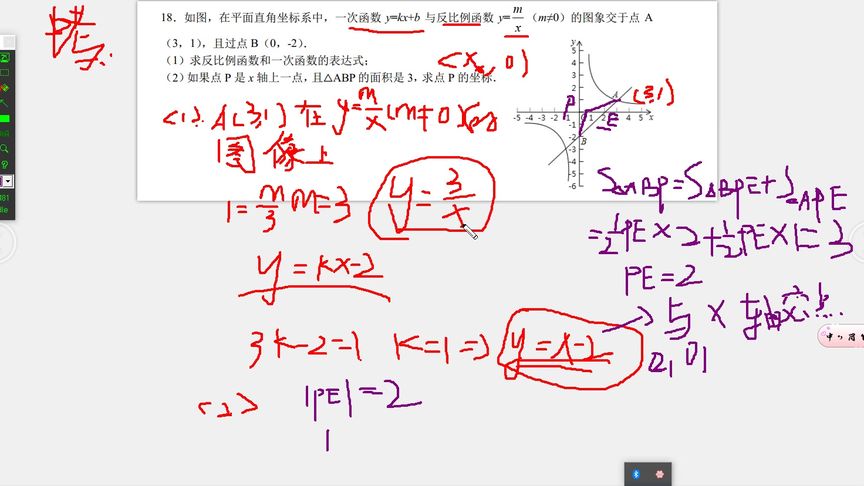 18. 如图，在平面直角坐标系中，一次函数 y=kx+b 与反比例函数 y=m/x（m≠0）的图象交于点 A
（3，1），且过点 B（0，-2）．
（1）求反比例函数和一次函数的表达式；
（2）如果点 P 是 x 轴上一点，且△ABP 的面积是 3，求点 P 的坐标．
(x, 0)
(3,1)
(1). A(3,1) 在 y=m/x (m≠0) 的
图像上
1=m/3 m=3 y=3/x
y=kx-2
3k-2=1 k=1 => y=x-2
(2) |PE|=2
1
S△ABP=S△BPE+S△APE
=1/2PE×2+1/2PE×1=3
PE=2
→与X轴交点...
2, 0)
y
5
4
3
2
1
-5 -4 -3 -2 -1 1 2 3 4 5 x
-2
-3
-4
-5
-6
A
B
P
E